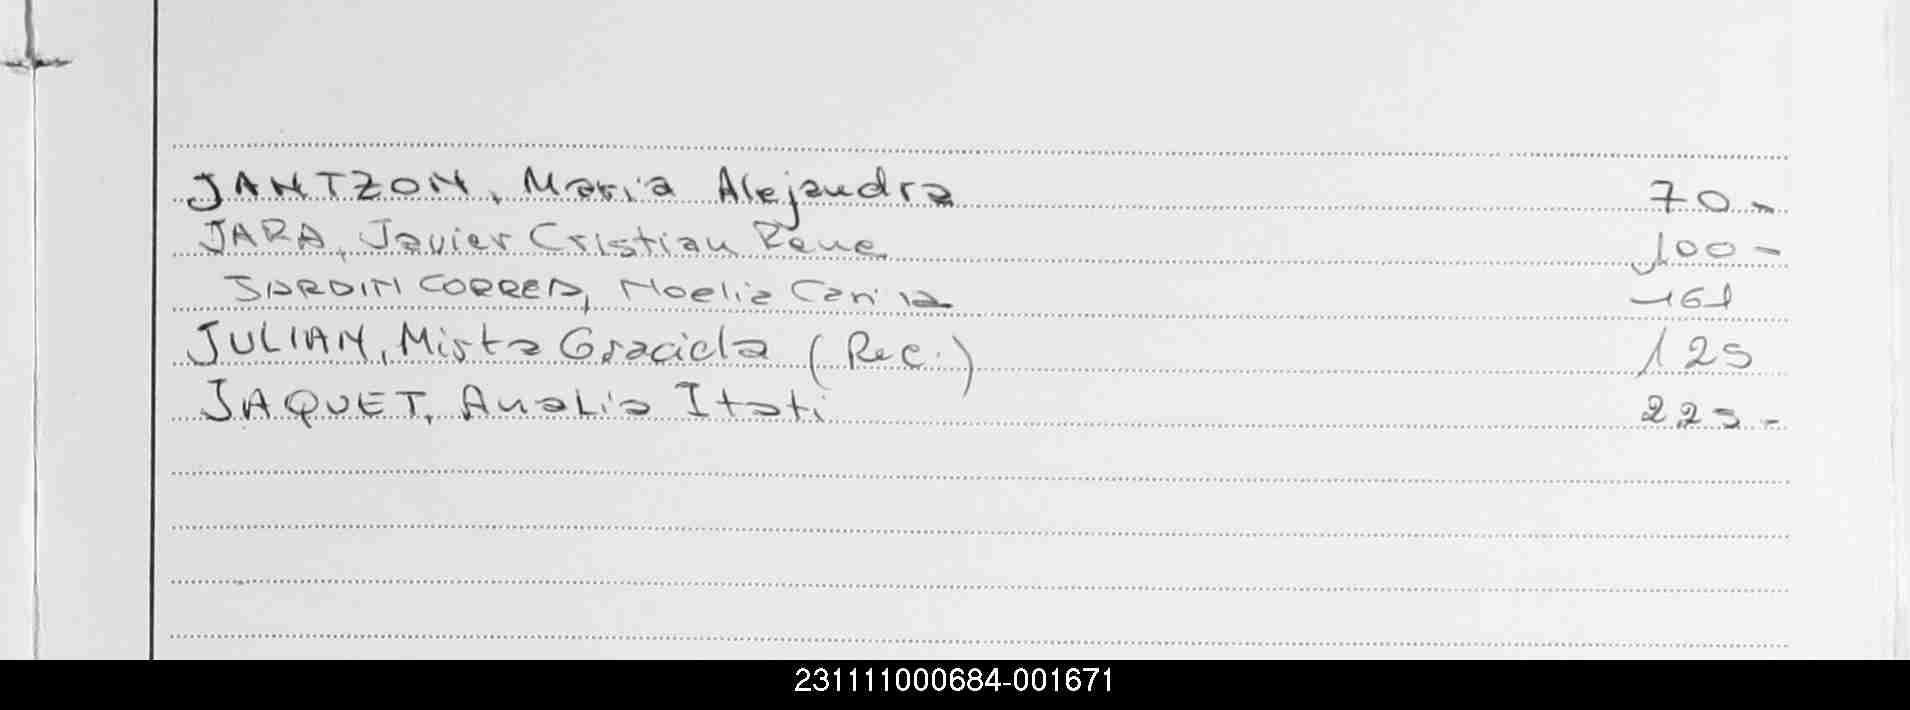 JANTZON, Maria Alejandra 70.-
JARA, Javier Cristian Rene 100-
JARDIN CORREA, Noelia Carina 161
JULIAN, Mirta Graciela (Rec.) 125
JAQUET, Analia Itati 225.-
231111000684-001671